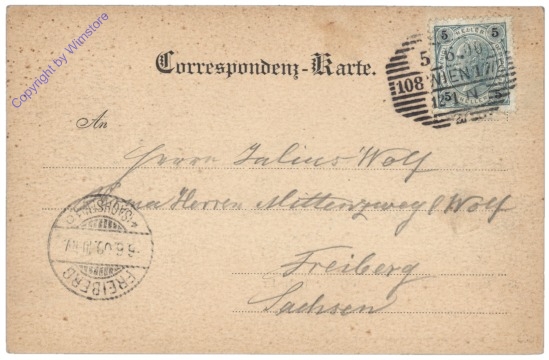 Copyright by Wimstore
Correspondenz-Karte.
5 5
WIEN 1/1
108
5 5
An
Herrn Julius Wolf
Firma Herren Mittenzwey & Wolf
Freiberg
Sachsen
FREIBERG